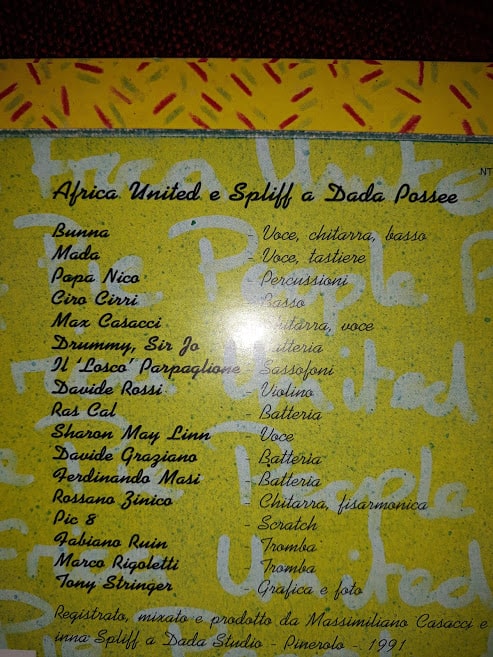 .NT
Africa United e Spliff a Dada Possee
Bunna - Voce, chitarra, basso
Mada - Voce, tastiere
Papa Nico - Percussioni
Ciro Cirri - Basso
Max Casacci - Chitarra, voce
Drummy, Sir Jo - Batteria
Il 'Losco' Parpaglione - Sassofoni
Davide Rossi - Violino
Ras Cal - Batteria
Sharon May Linn - Voce
Davide Graziano - Batteria
Ferdinando Masi - Batteria
Rossano Zinico - Chitarra, fisarmonica
Pic 8 - Scratch
Fabiano Ruin - Tromba
Marco Rigoletti - Tromba
Tony Stringer - Grafica e foto
Registrato, mixato e prodotto da Massimiliano Casacci e
inna Spliff a Dada Studio - Pinerolo - 1991